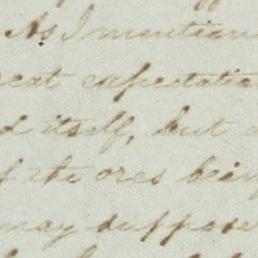 As I mention
eat expectatio
d itself, but
f the ores bein
may suppose